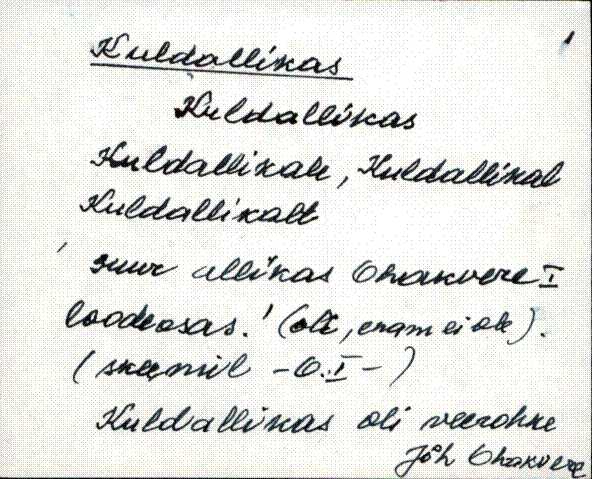 Kuldallikas
Kuldallikas
Kuldallikale, Kuldallikal
Kuldallikalt
suur allikas Ohakvere I
loodeosas. (oli, enam ei ole).
(skeemil - O. I - )
Kuldallikas oli veerohke
Jõh Ohakvere